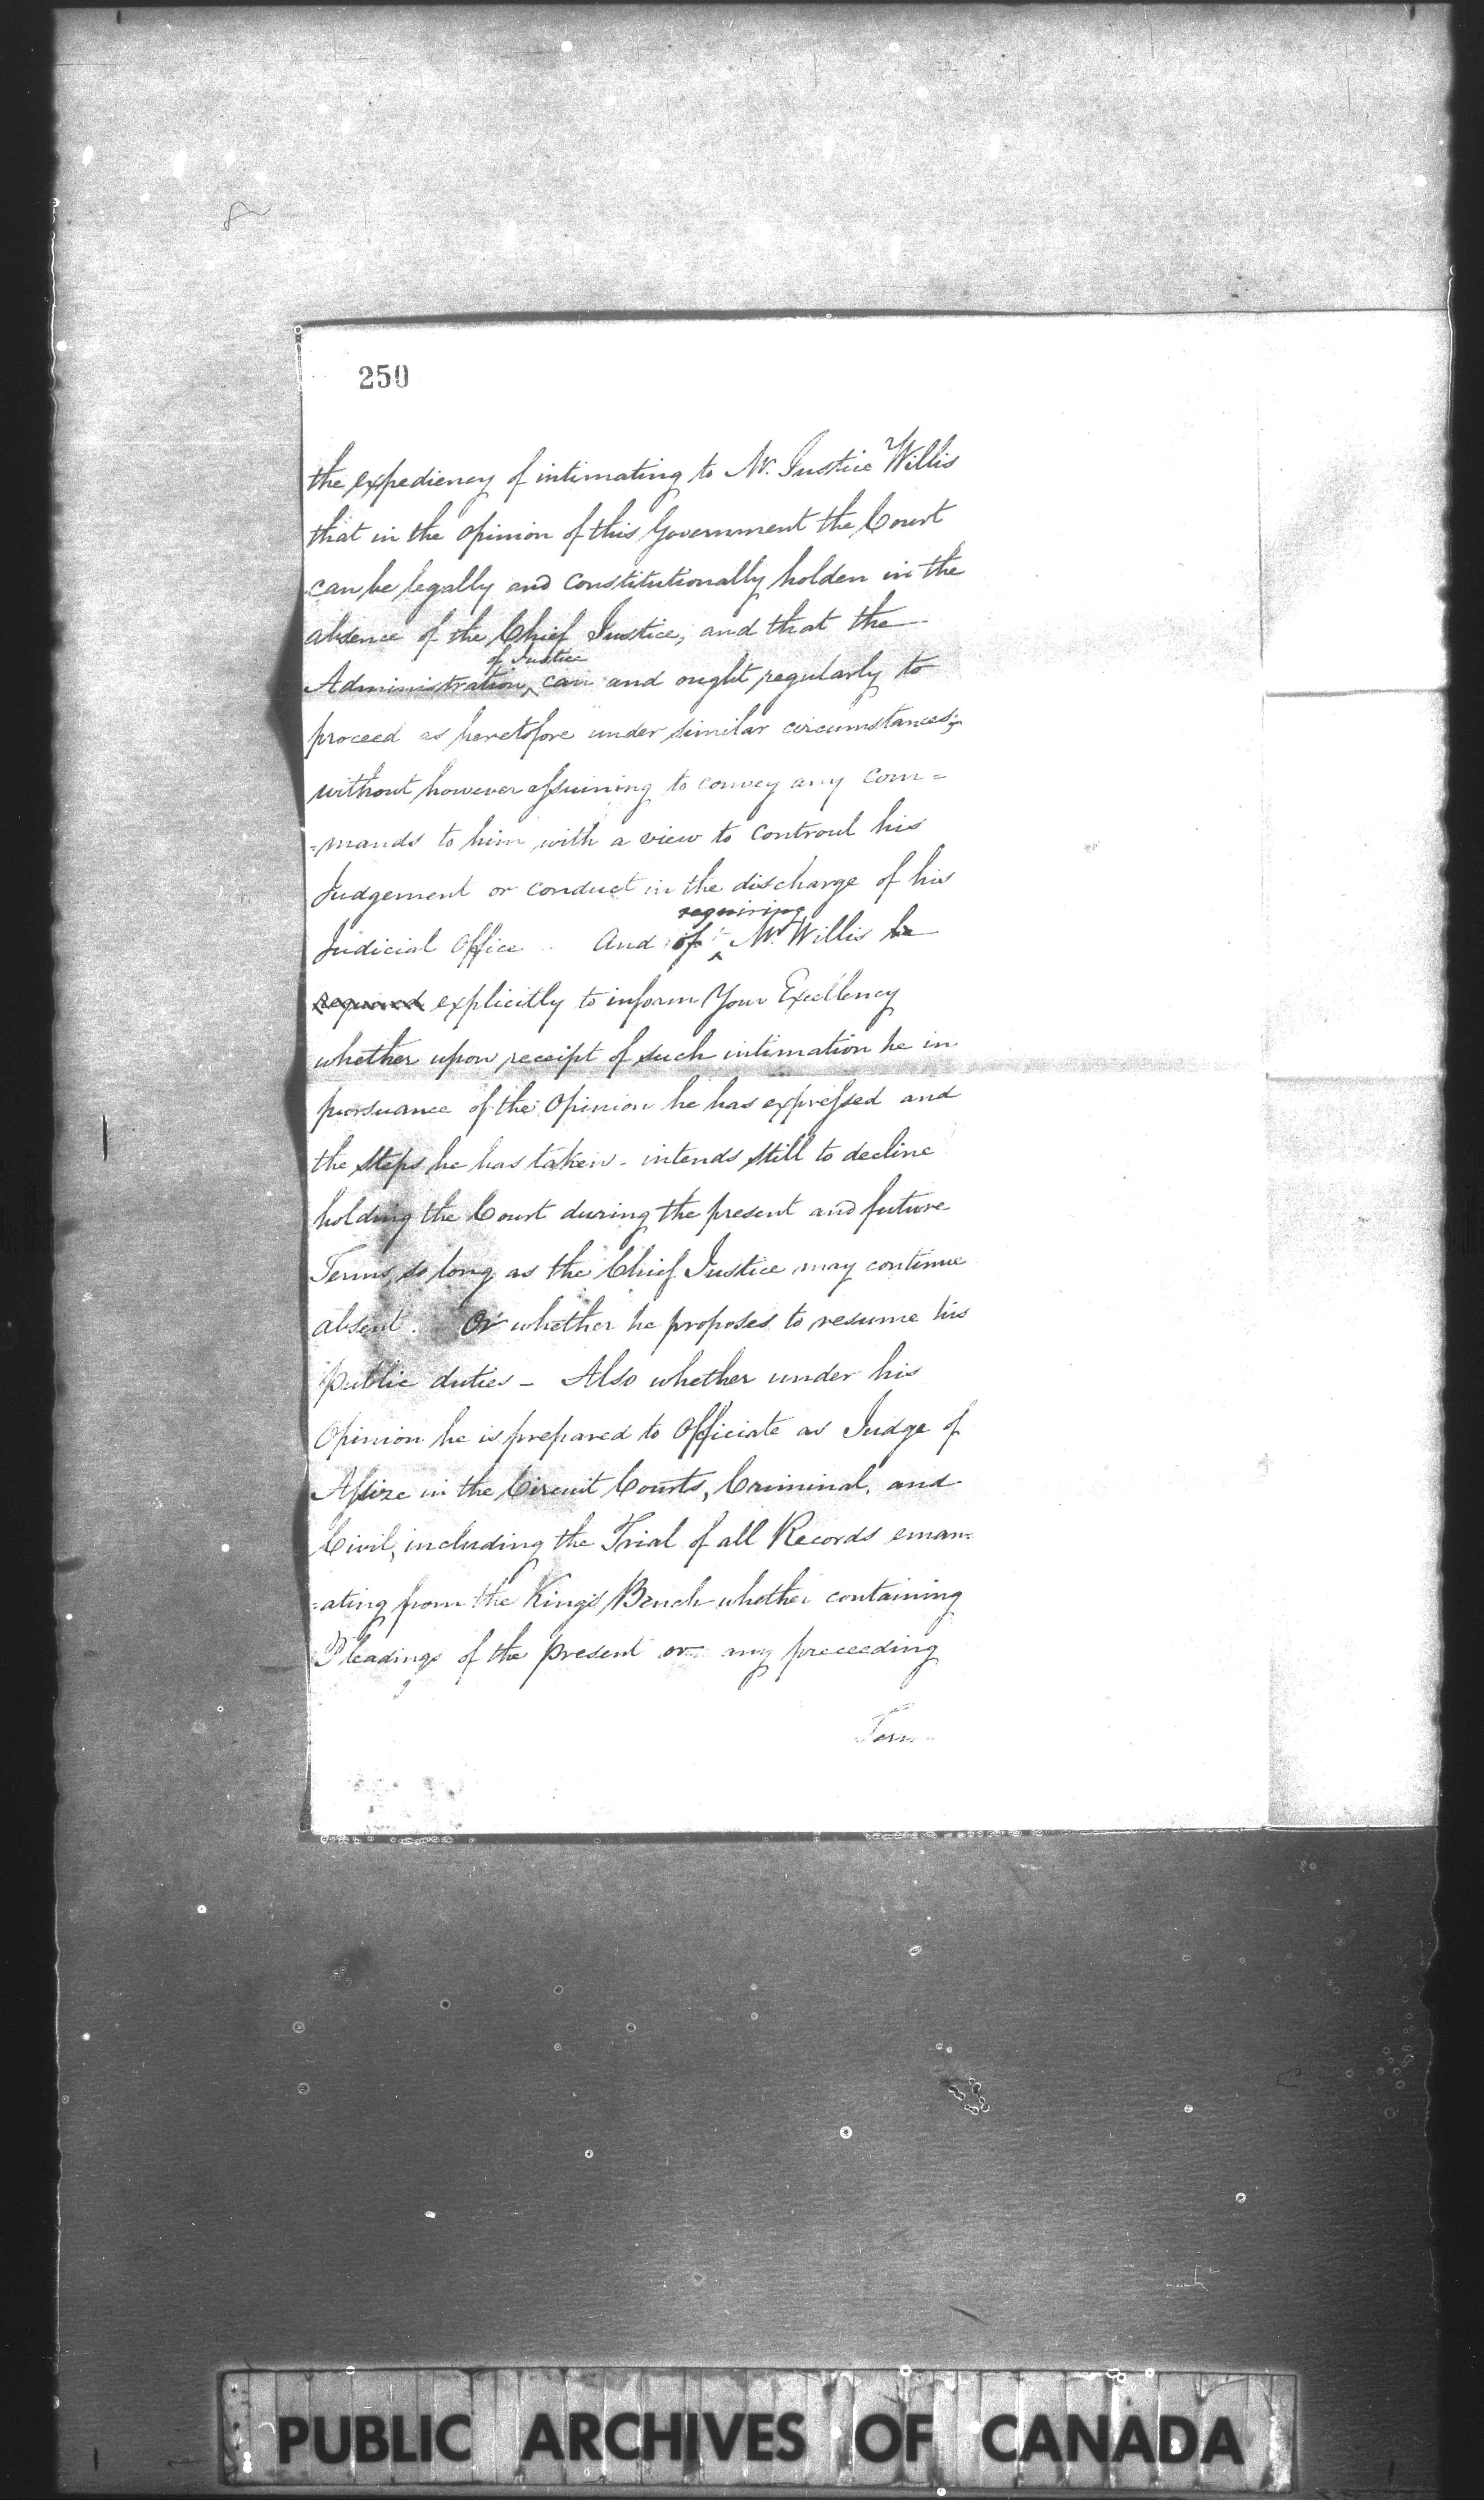 250
the expediency of intimating to Mr. Justice Willis
that in the opinion of this Government the Court
can be legally and Constitutionally holden in the
absence of the Chief Justice, and that the
of Justice
Administration, can and ought regularly to
proceed as heretofore under similar circumstances;
without however assuming to convey any Com=
=mands to him with a view to controul his
Judgement or conduct in the discharge of his
requiring
Judicial Office And of Mr. Willis be
required explicitly to inform Your Excellency
whether upon receipt of such intimation he in
pursuance of the Opinion he has expressed and
the steps he has taken - intends still to decline
holding the Court during the present and future
Terms, so long as the Chief Justice may continue
absent. Or whether he proposes to resume his
public duties - Also whether under his
Opinion he is prepared to Officiate as Judge of
Assize in the Circuit Courts, Criminal, and
Civil, including the Trial of all Records eman=
=ating from the King's Bench whether containing
Pleadings of the present or any preceeding
Term
PUBLIC ARCHIVES OF CANADA